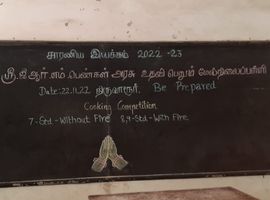 சாரணிய இயக்கம் 2022 -23
ஸ்ரீ.ஜி.ஆர்.எம்.பெண்கள் அரசு உதவி பெறும் மேல்நிலைப்பள்ளி
Date:22.11.22 திருவாரூர். Be Prepared
Cooking Competition
7-Std-Without Fire 8,9-Std-With Fire